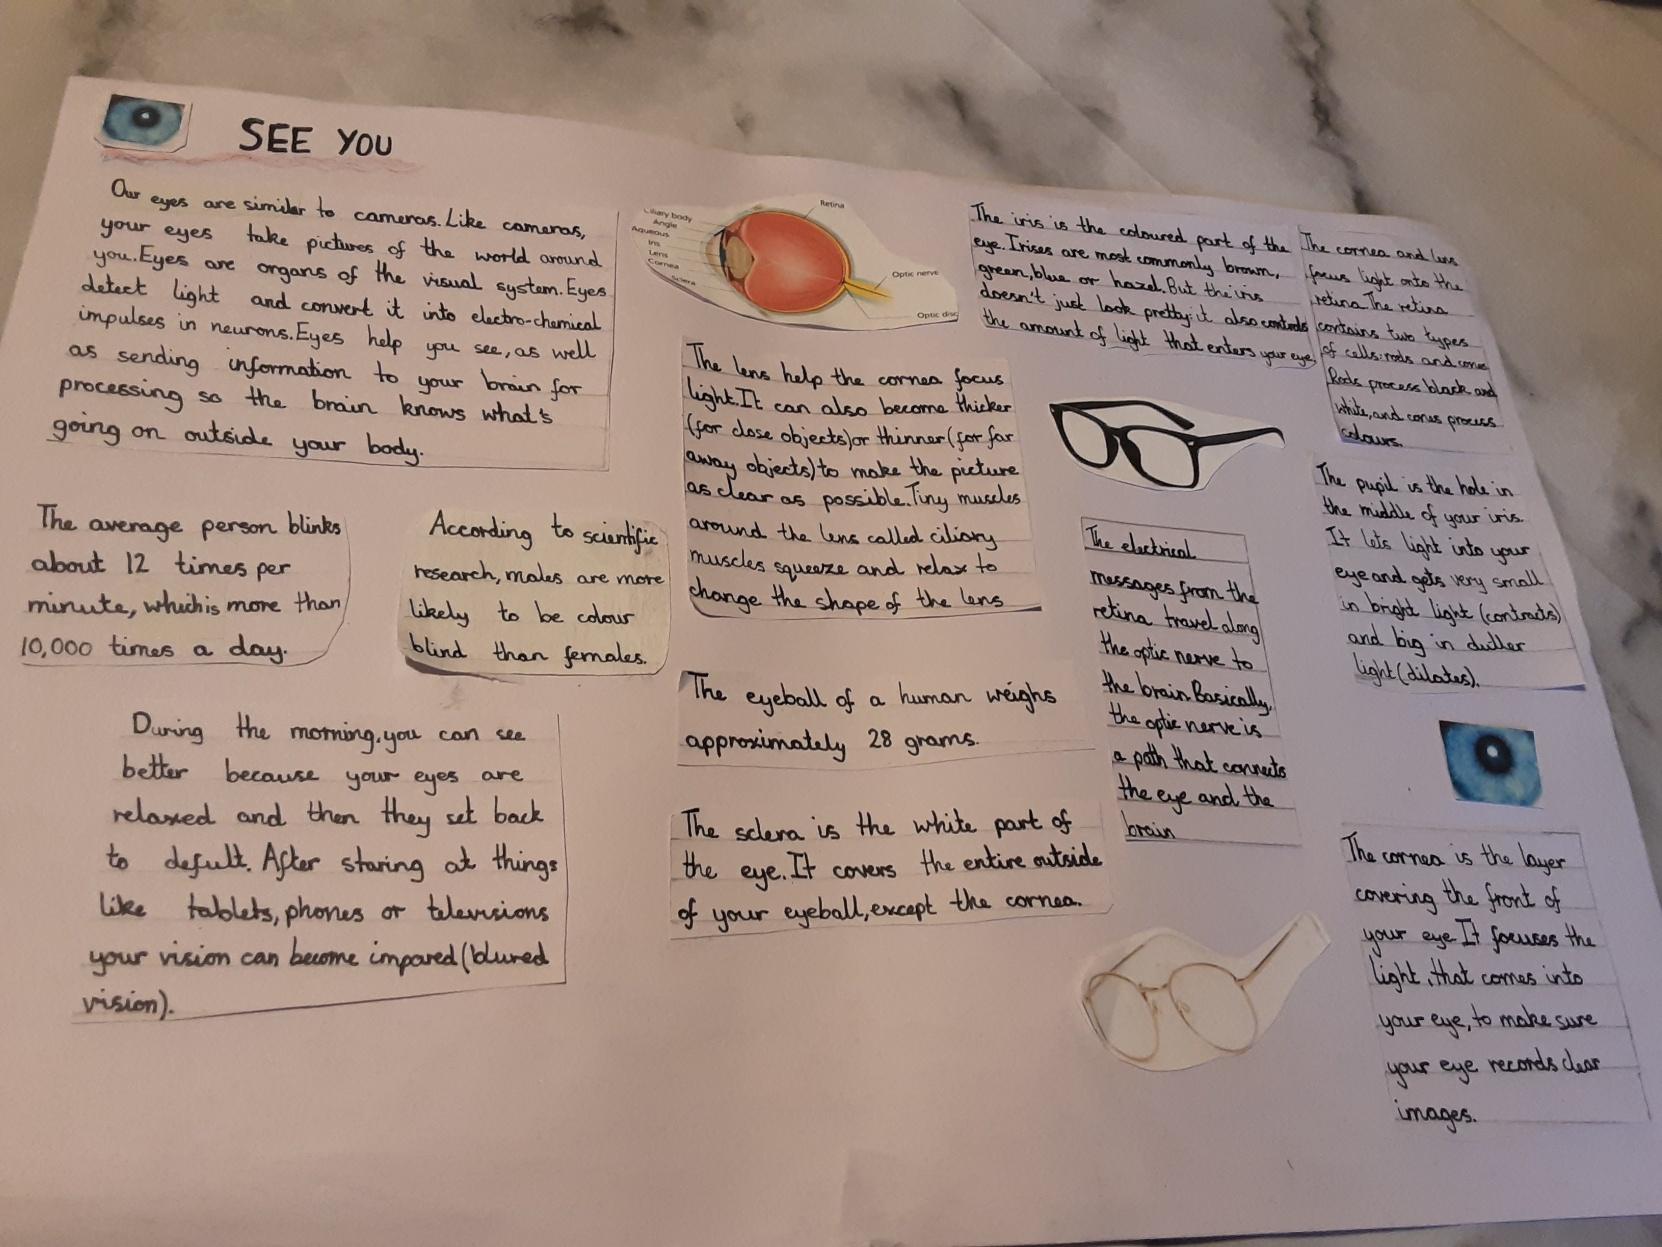 SEE YOU
Our eyes are similar to cameras. Like cameras,
your eyes take pictures of the world around
you. Eyes are organs of the visual system. Eyes
detect light and convert it into electro-chemical
impulses in neurons. Eyes help you see, as well
as sending information to your brain for
processing so the brain knows what's
going on outside your body.
The average person blinks
about 12 times per
minute, which is more than
10,000 times a day.
According to scientific
research, males are more
likely to be colour
blind than females.
During the morning, you can see
better because your eyes are
relaxed and then they set back
to defult. After staring at things
like tablets, phones or televisions
your vision can become impared (blured
vision).
Ciliary body
Angle
Aqueous
Iris
Lens
Cornea
Sclera
Retina
Optic nerve
Optic disc
The lens help the cornea focus
light. It can also become thicker
(for close objects) or thinner (for far
away objects) to make the picture
as clear as possible. Tiny muscles
around the lens called ciliary
muscles squeeze and relax to
change the shape of the lens
The eyeball of a human weighs
approximately 28 grams.
The sclera is the white part of
the eye. It covers the entire outside
of your eyeball, except the cornea.
The iris is the coloured part of the
eye. Irises are most commonly brown,
green, blue or hazel. But the iris
doesn't just look pretty: it also controls
the amount of light that enters your eye
The electrical
messages from the
retina travel along
the optic nerve to
the brain. Basically,
the optic nerve is
a path that connects
the eye and the
brain
The cornea and lens
focus light onto the
retina. The retina
contains two types
of cells: rods and cones
Rods process black and
white, and cones process
colours.
The pupil is the hole in
the middle of your iris.
It lets light into your
eye and gets very small
in bright light (contracts)
and big in duller
light (dilates).
The cornea is the layer
covering the front of
your eye. It focuses the
light, that comes into
your eye, to make sure
your eye records clear
images.